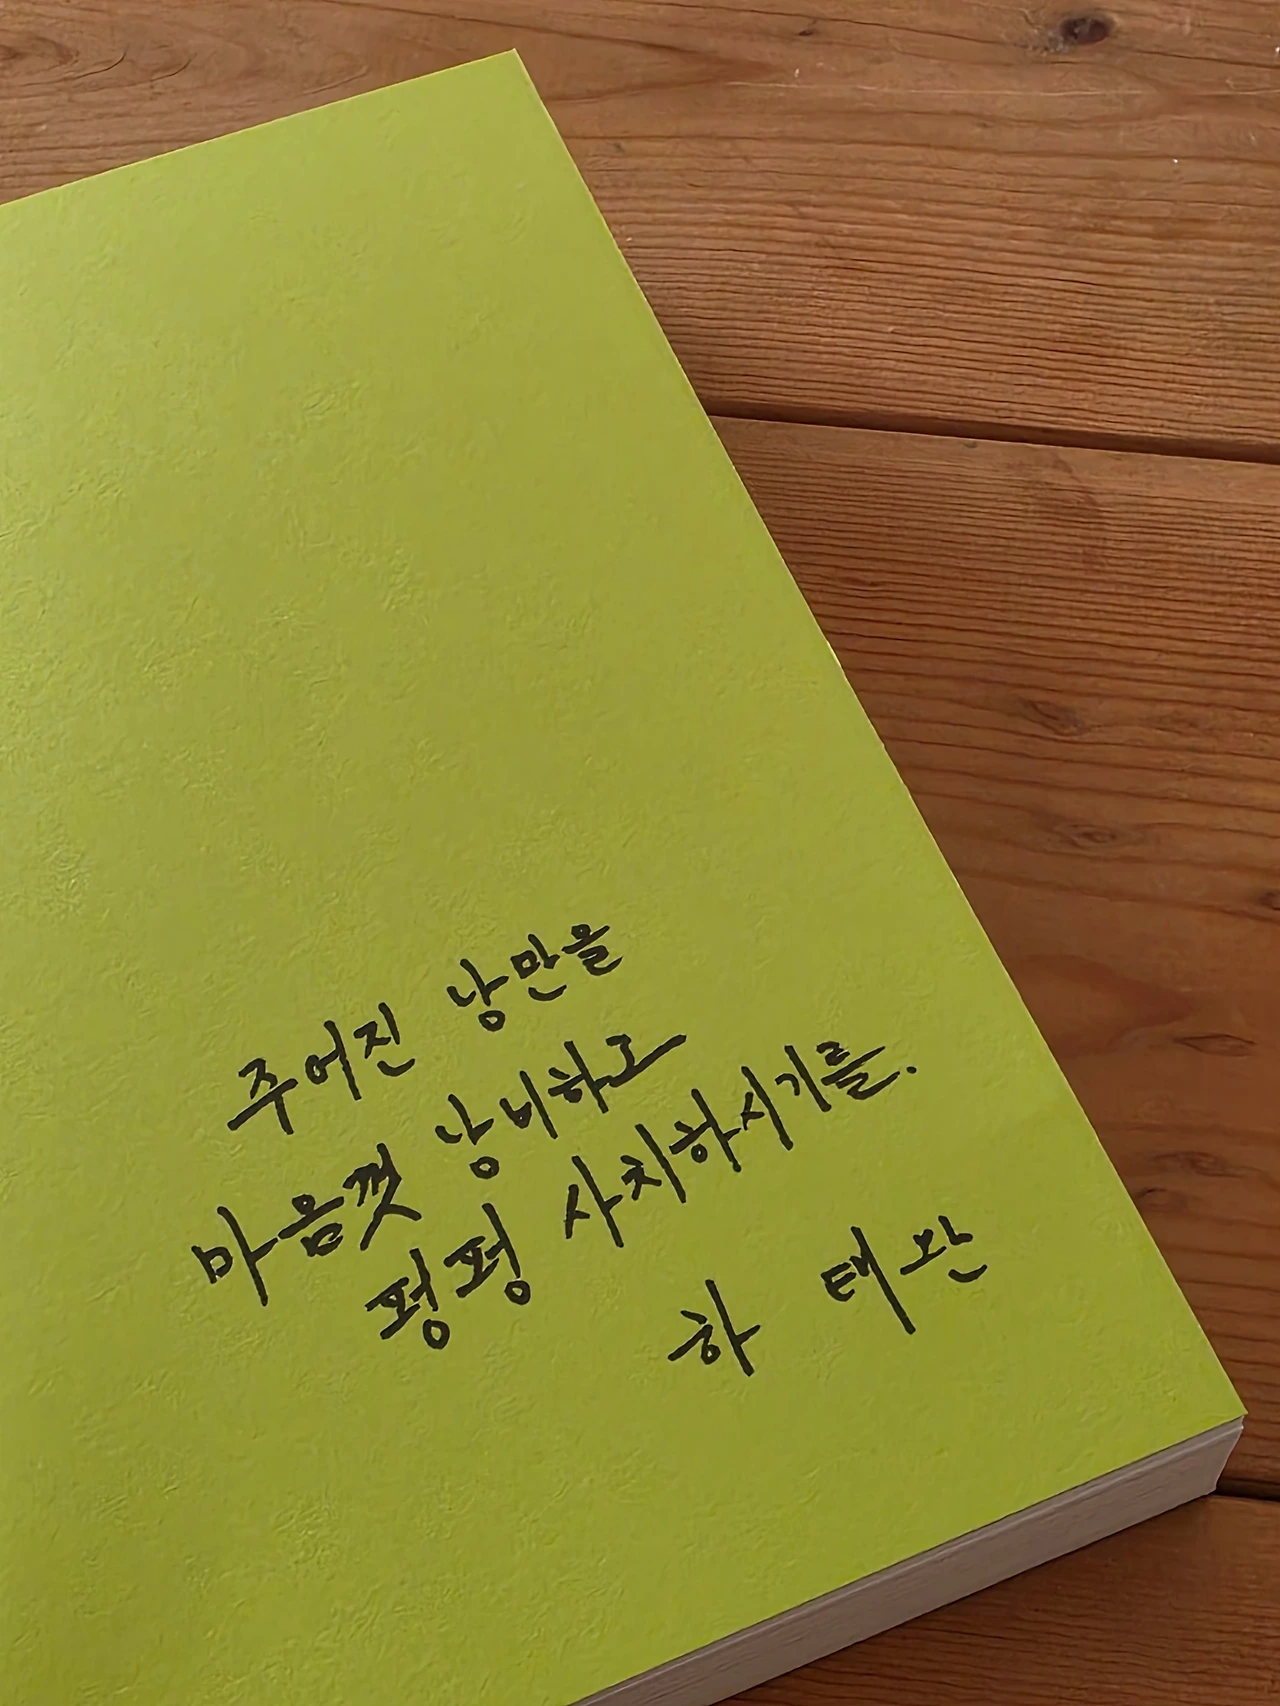 주어진 낭만을
마음껏 낭비하고
펑펑 사치하시기를.
하태완